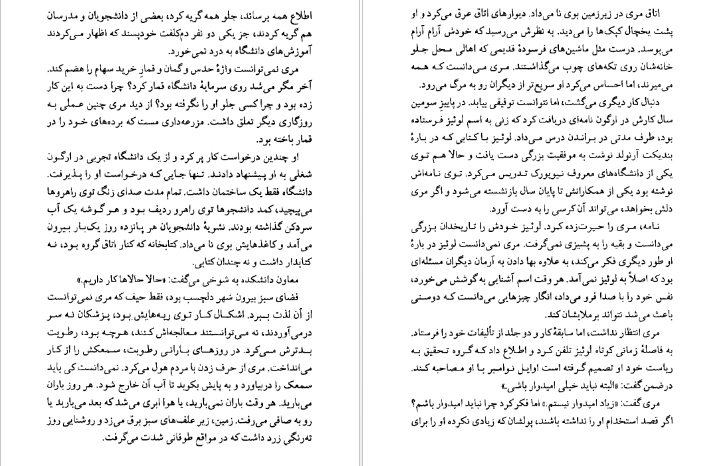 اتاق مری در زیرزمین بوی نا می‌داد. دیوارهای اتاق عرق می‌کرد و او
پشت یخچال کپک‌ها را می‌دید. به نظرش می‌رسید که خودش آرام آرام
می‌پوسد. درست مثل ماشین‌های فرسودهٔ قدیمی که اهالی محل جلو
خانه‌شان روی تکه‌های چوب می‌گذاشتند. مری می‌دانست که همه
می‌میرند، اما احساس می‌کرد او سریع‌تر از دیگران رو به مرگ می‌رود.
دنبال کار دیگری می‌گشت، اما نتوانست توفیقی بیابد. در پاییز سومین
سال کارش در ارگون نامه‌ای دریافت کرد که زنی به اسم لوئیز فرستاده
بود، طرف مدتی در براندن درس می‌داد. لوئیز با کتابی که در بارهٔ
بندیکت آرنولد نوشت به موفقیت بزرگی دست یافت و حالا هم توی
یکی از دانشگاه‌های معروف نیویورک تدریس می‌کرد. توی نامه‌اش
نوشته بود یکی از همکارانش تا پایان سال بازنشسته می‌شود و اگر مری
دلش بخواهد، می‌تواند آن کرسی را به دست آورد.
نامه، مری را حیرت‌زده کرد. لوئیز خودش را تاریخدان بزرگی
می‌دانست و بقیه را به پشیزی نمی‌گرفت. مری نمی‌دانست لوئیز در بارهٔ
او طور دیگری فکر می‌کند، به علاوه بها دادن به آرمان دیگران مسئله‌ای
بود که اصلاً به لوئیز نمی‌آمد. هر وقت اسم آشنایی به گوشش می‌خورد،
نفس خود را با صدا فرو می‌داد، انگار چیزهایی می‌دانست که دوستی
باعث می‌شد نتواند برملایشان کند.
مری انتظار نداشت، اما سابقهٔ کار و دو جلد از تألیفات خود را فرستاد.
به فاصلهٔ زمانی کوتاه لوئیز تلفن کرد و اطلاع داد که گروه تحقیق به
ریاست خود او تصمیم گرفته است اوایل نوامبر با او مصاحبه کند.
درضمن گفت: «البته نباید خیلی امیدوار باشی.»
مری گفت: «زیاد امیدوار نیستم.» اما فکر کرد چرا نباید امیدوار باشم؟
اگر قصد استخدام او را نداشته باشند، پولشان که زیادی نکرده او را برای
اطلاع همه برساند، جلو همه گریه کرد، بعضی از دانشجویان و مدرسان
هم گریه کردند، جز یکی دو نفر دم‌کلفت خودپسند که اظهار می‌کردند
آموزش‌های دانشگاه به درد نمی‌خورد.
مری نمی‌توانست واژهٔ حدس و گمان و قمار خرید سهام را هضم کند.
آخر مگر می‌شد روی سرمایهٔ دانشگاه قمار کرد؟ چرا دست به این کار
زده بود و چرا کسی جلو او را نگرفته بود؟ از دید مری چنین عملی به
روزگاری دیگر تعلق داشت. مزرعه‌داری مست که برده‌های خود را در
قمار باخته بود.
او چندین درخواست کار پر کرد و از یک دانشگاه تجربی در ارگون
شغلی به او پیشنهاد دادند. تنها جایی که درخواست او را پذیرفت.
دانشگاه فقط یک ساختمان داشت. تمام مدت صدای زنگ توی راهروها
می‌پیچید، کمد دانشجوها توی راهرو ردیف بود و هر گوشه یک آب
سردکن گذاشته بودند. نشریهٔ دانشجویان هر پانزده روز یک‌بار بیرون
می‌آمد و کاغذهایش بوی نا می‌داد. کتابخانه که کنار اتاق گروه بود، نه
کتابدار داشت و نه چندان کتابی.
معاون دانشکده به شوخی می‌گفت: «حالا حالاها کار داریم.»
فضای سبز بیرون شهر دلچسب بود، فقط حیف که مری نمی‌توانست
از آن لذت ببرد. اشکال کار توی ریه‌هایش بود، پزشکان نه سر
درمی‌آوردند، نه می‌توانستند معالجه‌اش کنند، هرچه بود، رطوبت
بدترش می‌کرد. در روزهای بارانی رطوبت، سمعکش را از کار
می‌انداخت. مری از حرف زدن با مردم هول می‌کرد. نمی‌دانست کی باید
سمعک را دربیاورد و به پایش بکوبد تا آب آن خارج شود. هر روز باران
می‌بارید. هر وقت باران نمی‌بارید، یا هوا ابری می‌شد که بعد می‌بارید یا
رو به صافی می‌رفت. زمین، زیر علف‌های سبز برق می‌زد و روشنایی روز
ته‌رنگی زرد داشت که در مواقع طوفانی شدت می‌گرفت.